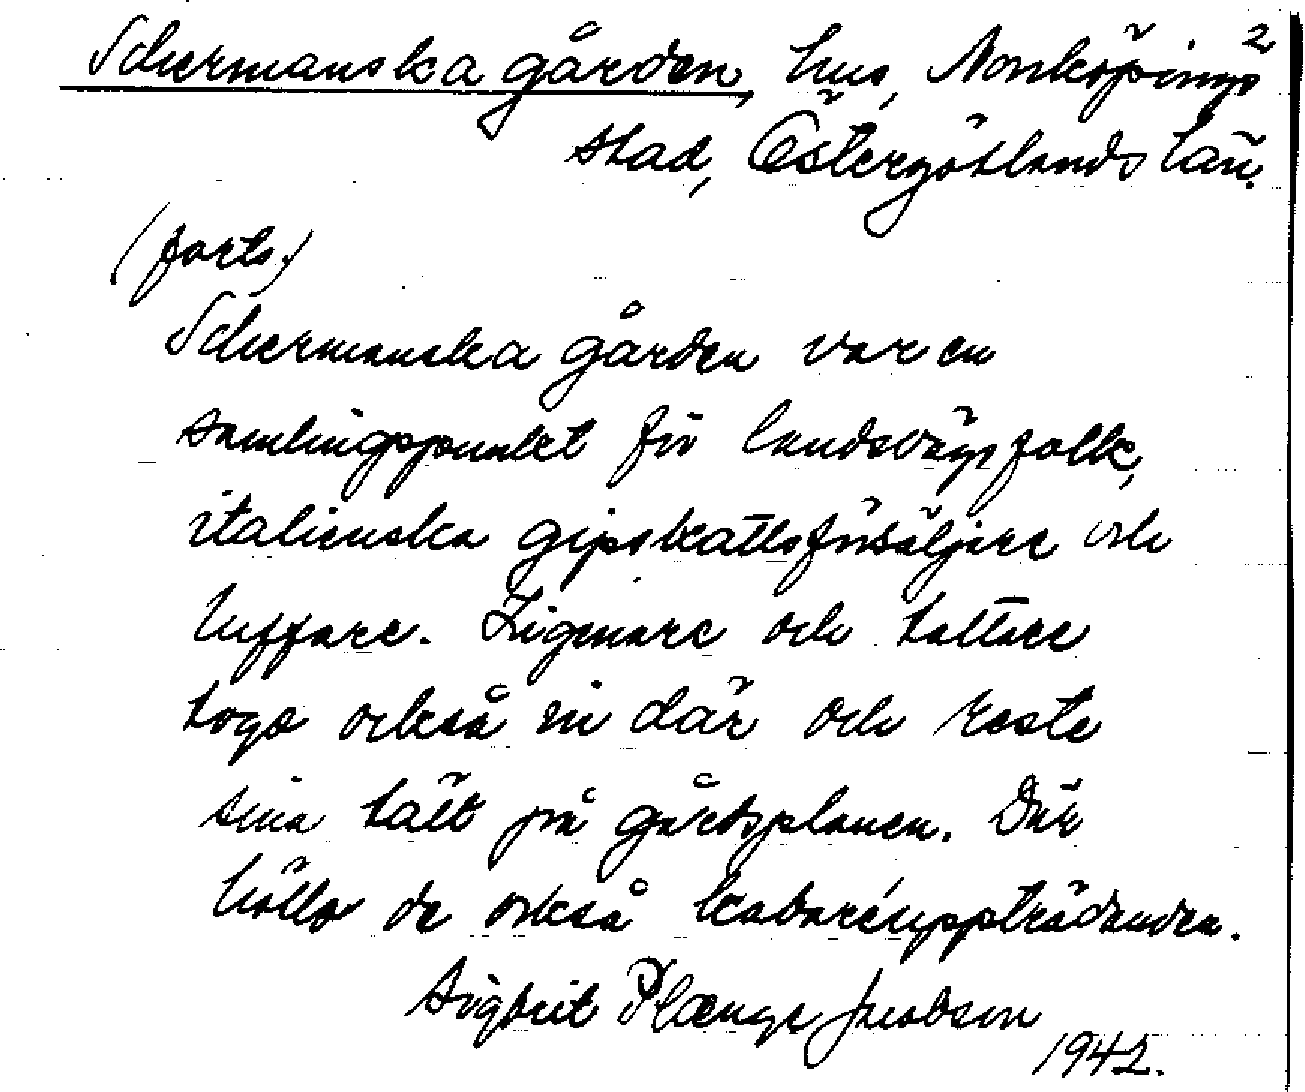 2
Schermanska gården, hus, Norrköpings
stad, Östergötlands län.
(forts.)
Schermanska gården var en
samlingspunkt för landsvägsfolk,
italienska gipskattsförsäljare och
luffare. Zigenare och tattare
togo också in där och reste
sina tält på gårdsplanen. Där
höllo de också kabaréuppträdanden.
Sigbrit Plænge Jacobson
1942.